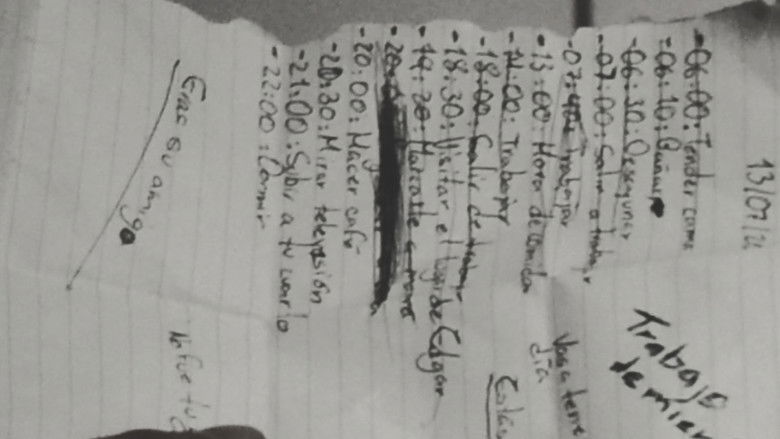 13/07/21
-06:00: Tender cama
-06:10: Bañarse
-06:30: Desayunar
-07:00: Salir a trabajar
-07:40: Trabajar
-13:00: Hora de comida
-14:00: Trabajar
-18:00: Salir de trabajar
-18:30: Visitar el lugar de Edgar
-19:20: Marcarle a mamá
-20:00: Hacer café
-20:30: Mirar televisión
-21:00: Subir a tu cuarto
-22:00: Dormir
Eras su amigo
Trabajo
de mier
Vas a tener
día
Estás